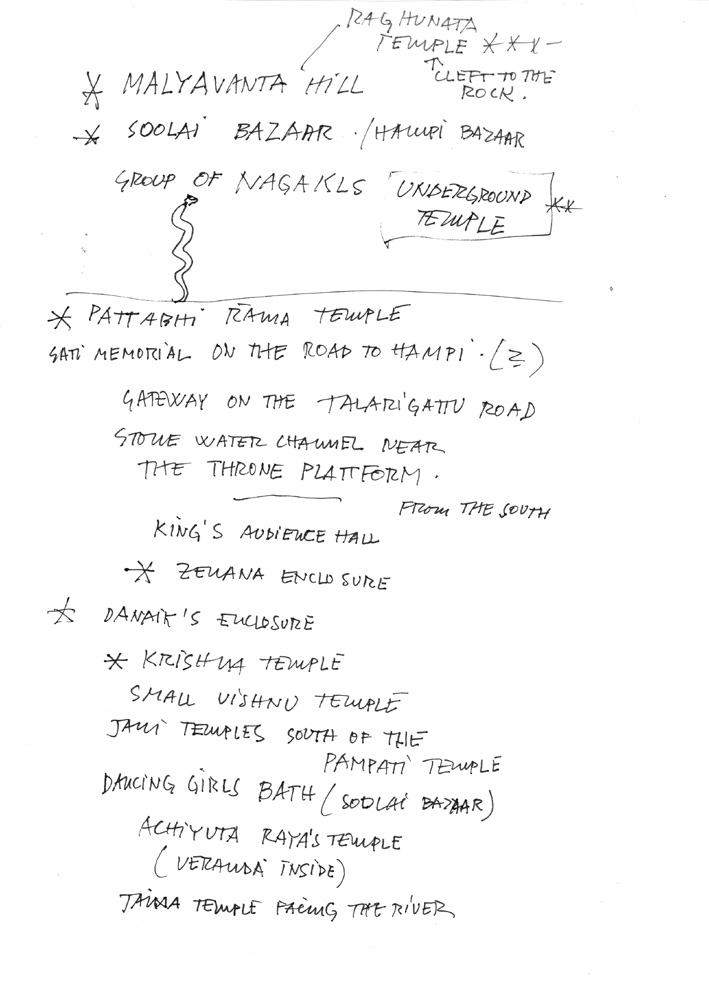 RAGHUNATA
TEMPLE
CLEFT TO THE
ROCK.
MALYAVANTA HILL
SOOLAI BAZAAR . / HAMPI BAZAAR
GROUP OF NAGAKLS
UNDERGROUND
TEMPLE
PATTABHI RAMA TEMPLE
SATI MEMORIAL ON THE ROAD TO HAMPI. (2)
GATEWAY ON THE TALARIGATTU ROAD
STONE WATER CHANNEL NEAR
THE THRONE PLATFORM.
FROM THE SOUTH
KING'S AUDIENCE HALL
ZENANA ENCLOSURE
DANAIK'S ENCLOSURE
KRISHNA TEMPLE
SMALL VISHNU TEMPLE
JAIN TEMPLES SOUTH OF THE
PAMPATI TEMPLE
DANCING GIRLS BATH (SOOLAI BAZAAR)
ACHIYUTA RAYA'S TEMPLE
(VERANDA INSIDE)
JAINA TEMPLE FACING THE RIVER